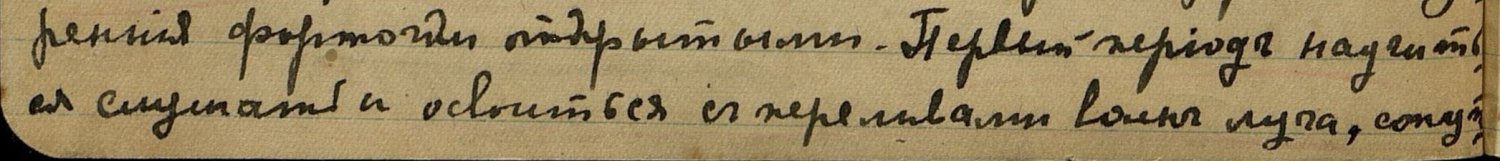 ренния форточки открытыми. Первый период научить
ся слушать и освоиться съ переливами волнъ луча, сопут